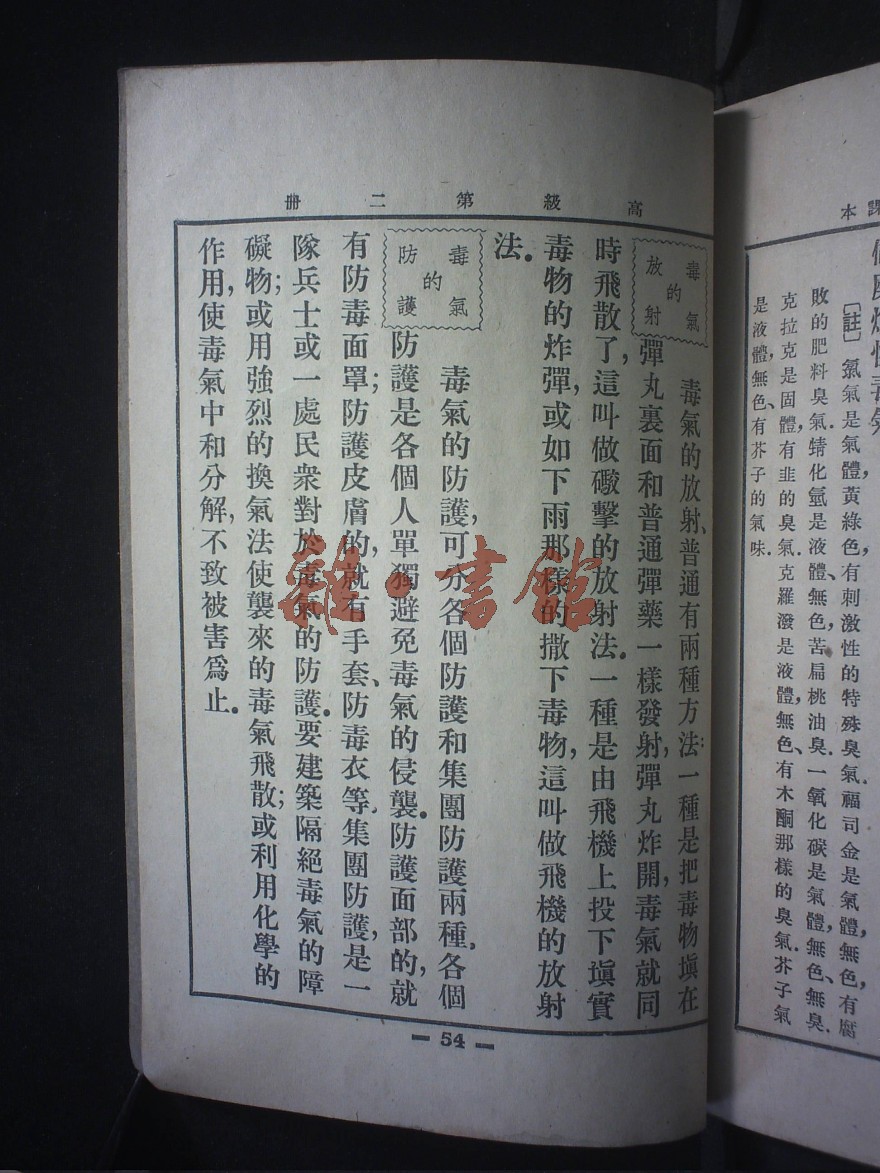 課本
氣〔註〕氯氣是氣體，黃綠色，有刺激性的特殊臭氣．福司金是氣體，無色，有腐
敗的肥料臭氣．蜻化氫是液體、無色，苦扁桃油臭．一氧化碳是氣體、無色、無臭．
克拉克是固體，有韭的臭氣．克羅潑是液體，無色、有木酮那樣的臭氣．芥子氣
是液體，無色、有芥子的氣味．
高級第二冊
毒氣的放射
毒氣的放射、普通有兩種方法：一種是把毒物塡在
彈丸裏面和普通彈藥一樣發射，彈丸炸開，毒氣就同
時飛散了，這叫做礮擊的放射法．一種是由飛機上投下塡實
毒物的炸彈，或如下雨那樣的撒下毒物，這叫做飛機的放射
法．
毒氣的防護
毒氣的防護，可分各個防護和集團防護兩種．各個
防護是各個人單獨避免毒氣的侵襲．防護面部的，就
有防毒面罩；防護皮膚的，就有手套、防毒衣等．集團防護，是一
隊兵士或一處民衆對於毒氣的防護．要建築隔絕毒氣的障
礙物；或用強烈的換氣法使襲來的毒氣飛散；或利用化學的
作用，使毒氣中和分解，不致被害爲止．
— 54 —
雜·書館